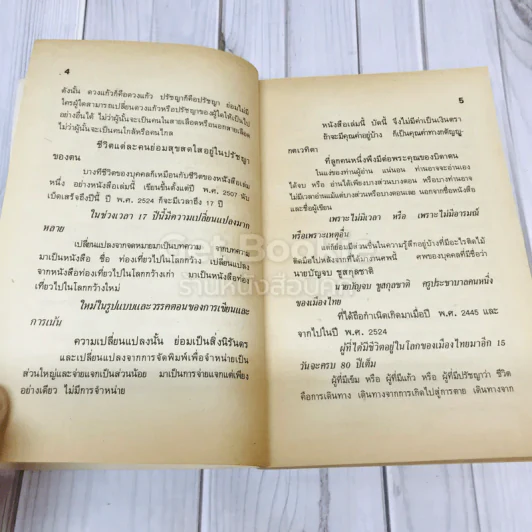 4
ดังนั้น ดวงแก้วก็คือดวงแก้ว ปรัชญาก็คือปรัชญา ย่อมไม่มี
ใครผู้ใดสามารถเปลี่ยนดวงแก้วหรือปรัชญาของผู้ใดให้เป็นไป
อย่างอื่นได้ ไม่ว่าผู้นั้นจะเป็นคนในสายเลือดหรือนอกสายเลือด
ไม่ว่าผู้นั้นจะเป็นคนใกล้หรือคนไกล
ชีวิตแต่ละคนย่อมสุขสดใสอยู่ในปรัชญา
ของตน
บางทีชีวิตของบุคคลก็เหมือนกับชีวิตของหนังสือเล่ม
หนึ่ง อย่างหนังสือเล่มนี้ เขียนขึ้นตั้งแต่ปี พ.ศ. 2507 นับ
เบ็ดเสร็จถึงปีนี้ ปี พ.ศ. 2524 ก็จะมีเวลาถึง 17 ปี
ในช่วงเวลา 17 ปีนี้มีความเปลี่ยนแปลงมาก
หลาย
เปลี่ยนแปลงจากจดหมายมาเป็นบทความ จากบทความ
มาเป็นหนังสือ ชื่อ ท่องเที่ยวไปในโลกกว้าง เปลี่ยนแปลง
จากหนังสือท่องเที่ยวไปในโลกกว้างเก่า มาเป็นหนังสือท่อง
เที่ยวไปในโลกกว้างใหม่
ใหม่ในรูปแบบและวรรคตอนของการเขียนและ
การเน้น
ความเปลี่ยนแปลงนั้น ย่อมเป็นสิ่งนิรันดร
และเปลี่ยนแปลงจากการจัดพิมพ์เพื่อจำหน่ายเป็น
ส่วนใหญ่และจ่ายแจกเป็นส่วนน้อย มาเป็นการจ่ายแจกแต่เพียง
อย่างเดียว ไม่มีการจำหน่าย
5
หนังสือเล่มนี้ บัดนี้ จึงไม่มีค่าเป็นเงินตรา
ถ้าจะมีคุณค่าอยู่บ้าง ก็เป็นคุณค่าทางกตัญญู-
กตเวทิตา
ที่ลูกคนหนึ่งพึงมีต่อพระคุณของบิดาตน
ในแง่ของท่านผู้อ่าน แน่นอน ท่านอาจจะอ่านเอง
ได้จบ หรือ อ่านได้เพียงบางส่วนบางตอน หรือบางท่านอาจ
ไม่มีเวลาอ่านแม้แต่บางส่วนหรือบางตอนเลย นอกจากชื่อหนังสือ
และชื่อผู้เขียน
เพราะไม่มีเวลา หรือ เพราะไม่มีอารมณ์
หรือเพราะเหตุอื่น
แต่ก็ย่อมมีส่วนชื่นในความรู้สึกอยู่บ้างที่มีอะไรติดไม้
ติดมือไปหลังจากที่ได้มางานศพนี้ ศพของบุคคลที่มีชื่อว่า
นายบัญจบ ชูสกุลชาติ
นายบัญจบ ชูสกุลชาติ ครูประชาบาลคนหนึ่ง
ของเมืองไทย
ที่ได้ถือกำเนิดเกิดมาเมื่อปี พ.ศ. 2445 และ
จากไปในปี พ.ศ. 2524
ผู้ที่ได้มีชีวิตอยู่ในโลกของเมืองไทยมาอีก 15
วันจะครบ 80 ปีเต็ม
ผู้ที่มีเข็ม หรือ ผู้ที่มีแก้ว หรือ ผู้ที่มีปรัชญาว่า ชีวิต
คือการเดินทาง เดินทางจากการเกิดไปสู่การตาย เดินทางจาก
GetBook
ร้านหนังสือบุ๊ค